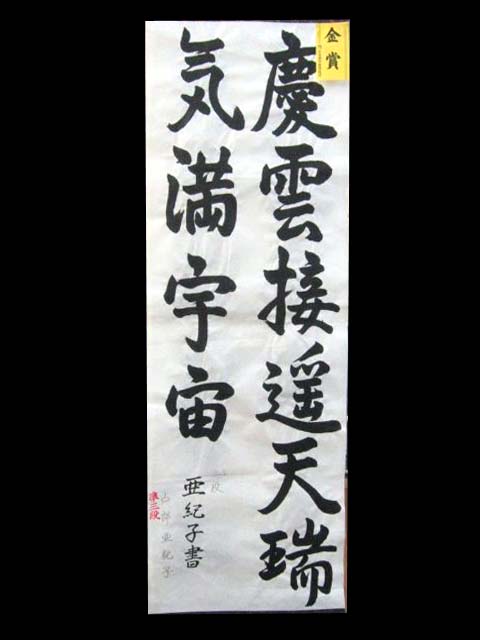 金賞
慶雲接遥天瑞
気満宇宙
亜紀子書
準三段